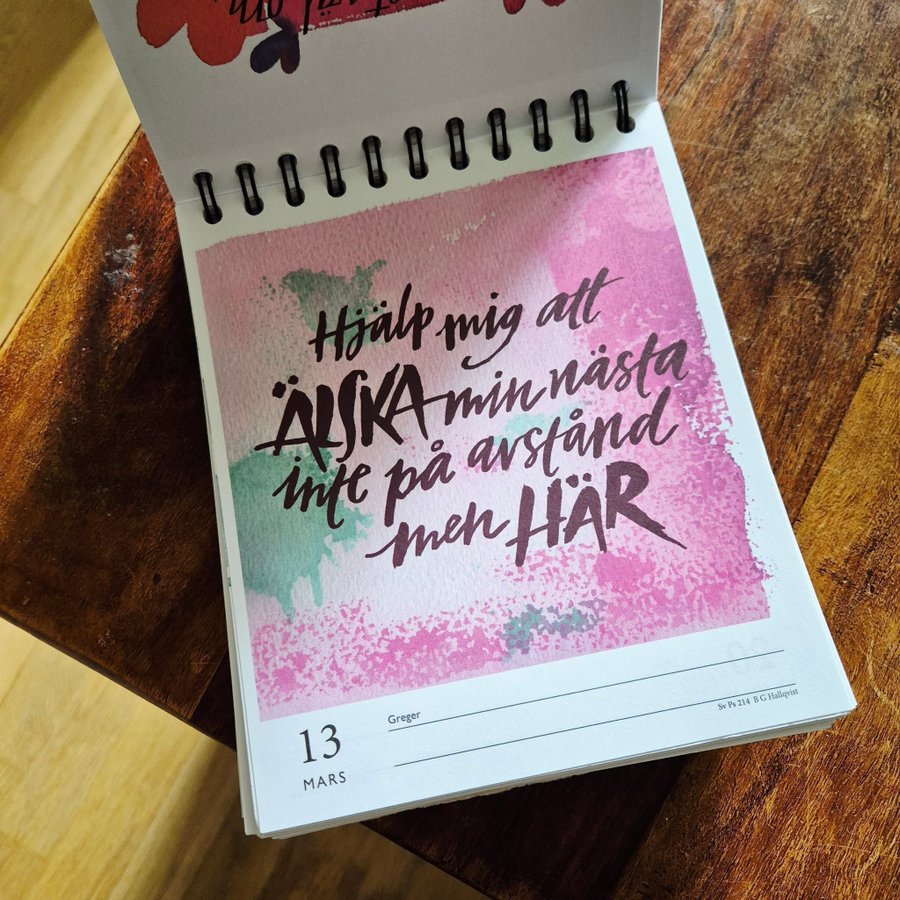 Hjälp mig att
ÄLSKA min nästa
inte på avstånd
men HÄR
Greger
Sv Ps 214 B G Hallqvist
13
MARS